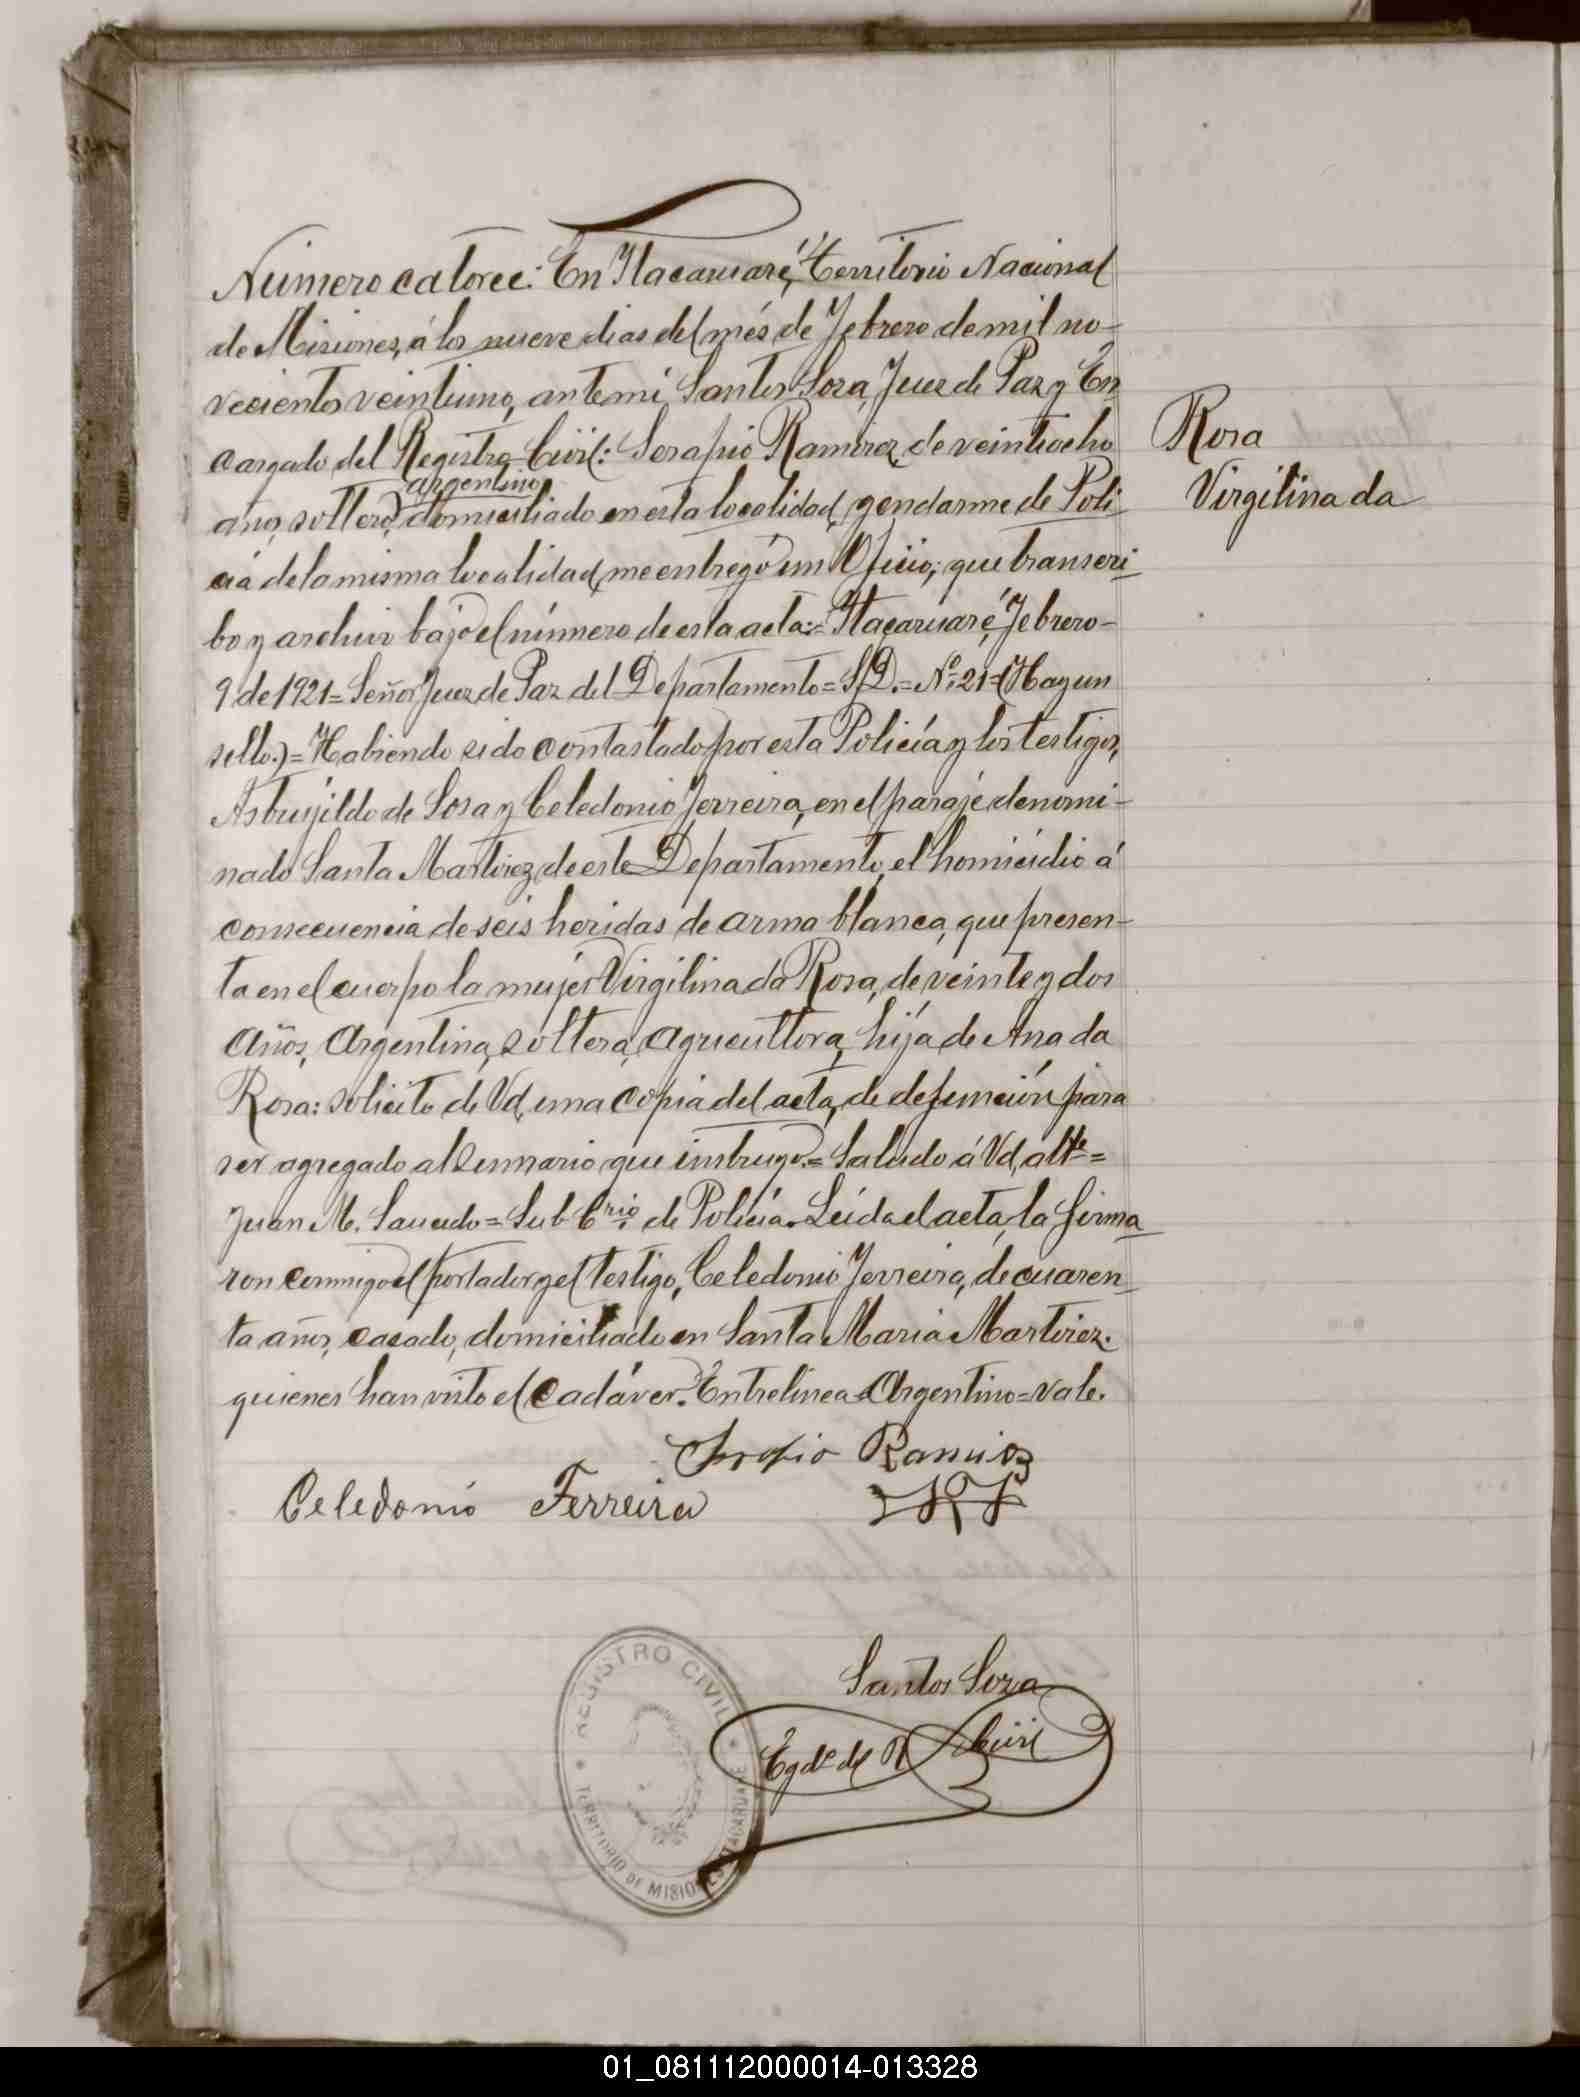 Número catorce: En Itacaruaré, Territorio Nacional
de Misiones, á los nueve dias del més de Febrero de mil no-
vecientos veintiuno, ante mí, Santos Soza, Juez de Paz y En
cargado del Registro Civil: Serapio Ramirez, de veintiocho
argentino
años, soltero, domiciliado en esta localidad, gendarme de Poli
cía de la misma localidad, me entregó un Oficio, que transcri-
bo y archivo bajo el número de esta acta:= Itacaruaré, Febrero-
9 de 1921= Señor Juez de Paz del Departamento= S/D.= Nº 21=(Hay un
sello.)= Habiendo sido contastado por esta Policía y los testigos,
Astrujildo de Sosa y Celedonio Ferreira, en el paraje denomi-
nado Santa Martirez, de este Departamento, el homicidio á
consecuencia de seis heridas de arma blanca, que presen-
ta en el cuerpo la mujer Virgilina da Rosa, de veinte y dos
años, Argentina, soltera, agricultora, hija de Ana da
Rosa: solicito de Vd, una copia del acta, de defunción para
ser agregado al Sumario que instruyo.= Saludo á Vd, alte=
Juan M. Saucedo= Sub Crio. de Policía. Leída el acta, la firma
ron conmigo el portador y el testigo, Celedonio Ferreira, de cuaren-
ta años, casado, domiciliado en Santa María Martirez.
quienes han visto el cadáver. Entrelinea= Argentino= vale.
Serapio Ramirez
Celedonio Ferreira
Santos Soza
Egdo. del R. Civil
Rosa
Virgilina da
REGISTRO CIVIL
TERRITORIO DE MISIONES ITACARUARE
01_081112000014-013328